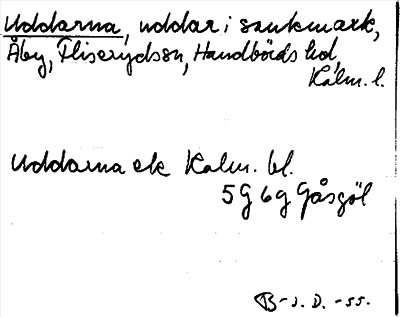 Uddarna, uddar i sankmark,
Åby, Fliseryds sn, Handbörds hd,
Kalm. l.
Uddarna ek Kalm. bl.
5 G 6 g Gåsgöl
B-J. D. -55.